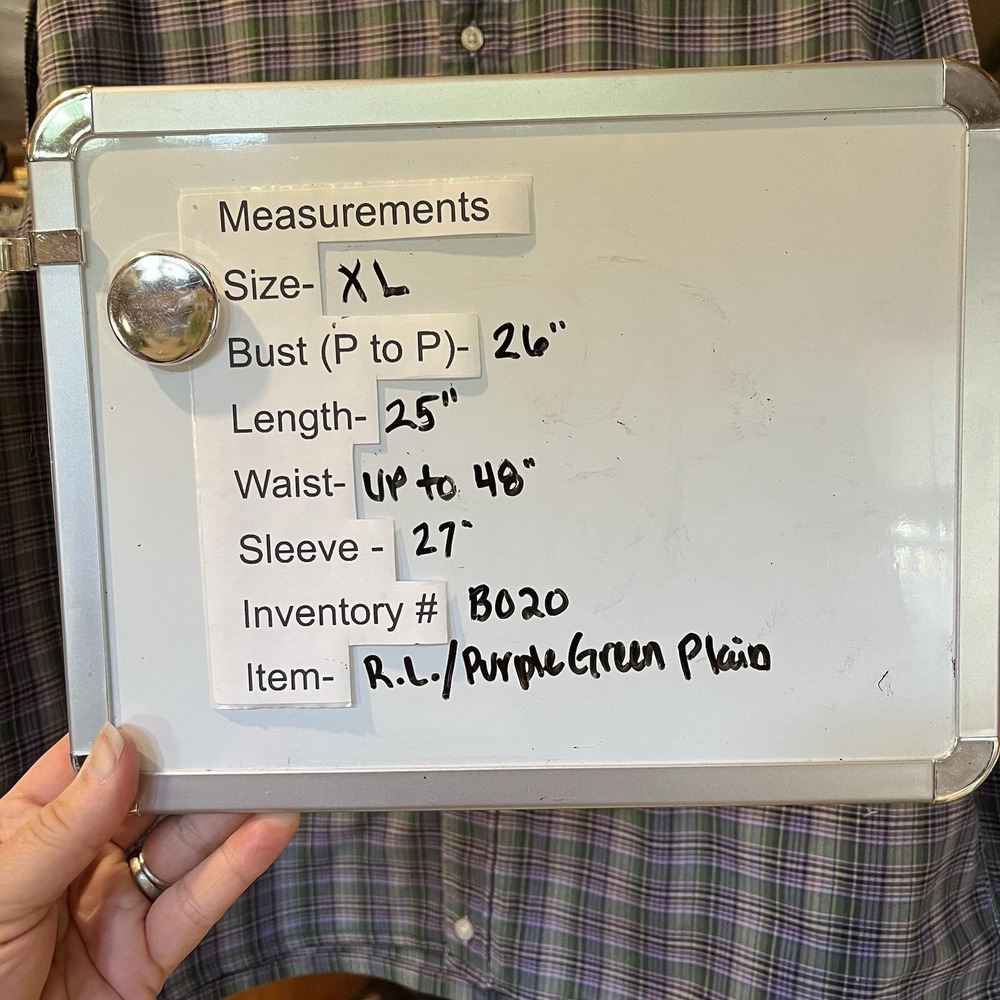 Measurements
Size- XL
Bust (P to P)- 26"
Length- 25"
Waist- UP to 48"
Sleeve - 27"
Inventory # B020
Item- R.L./Purple Green Plaid